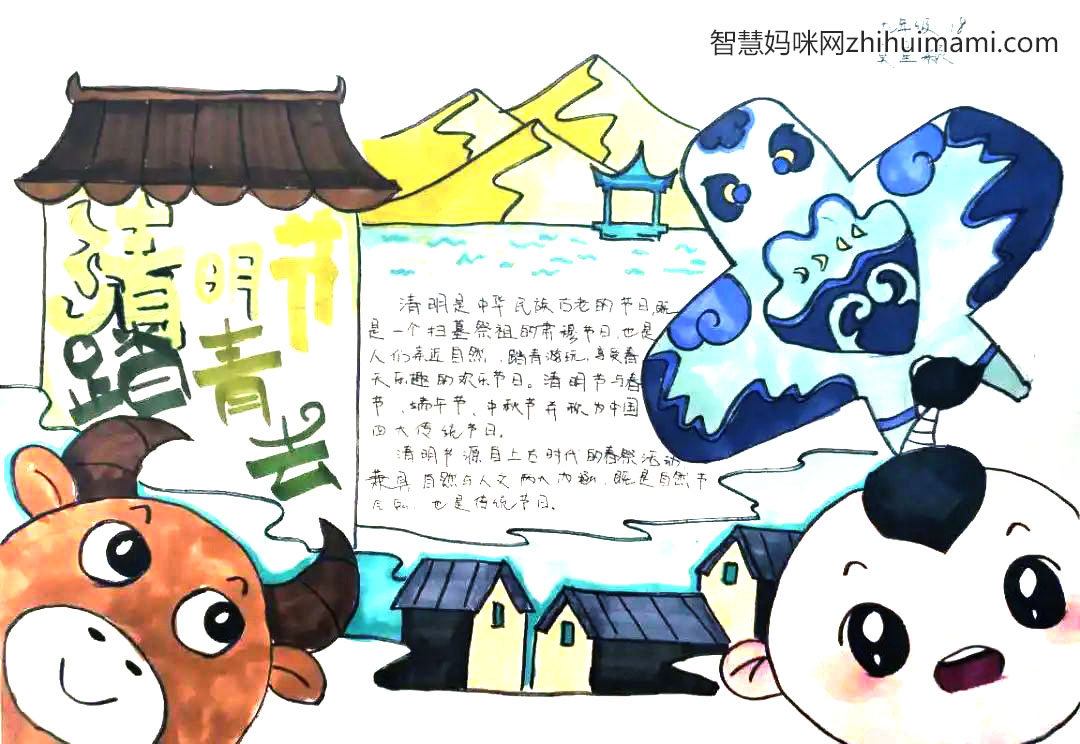 智慧妈咪网zhihuimami.com
七年级 18
清明节
踏青去
清明是中华民族古老的节日,既
是一个扫墓祭祖的肃穆节日,也是
人们亲近自然、踏青游玩、享受春
天乐趣的欢乐节日。清明节与春
节、端午节、中秋节并称为中国
四大传统节日。
清明节源自上古时代的春祭活动
兼具自然与人文两大内涵,既是自然节
也是传统节日。